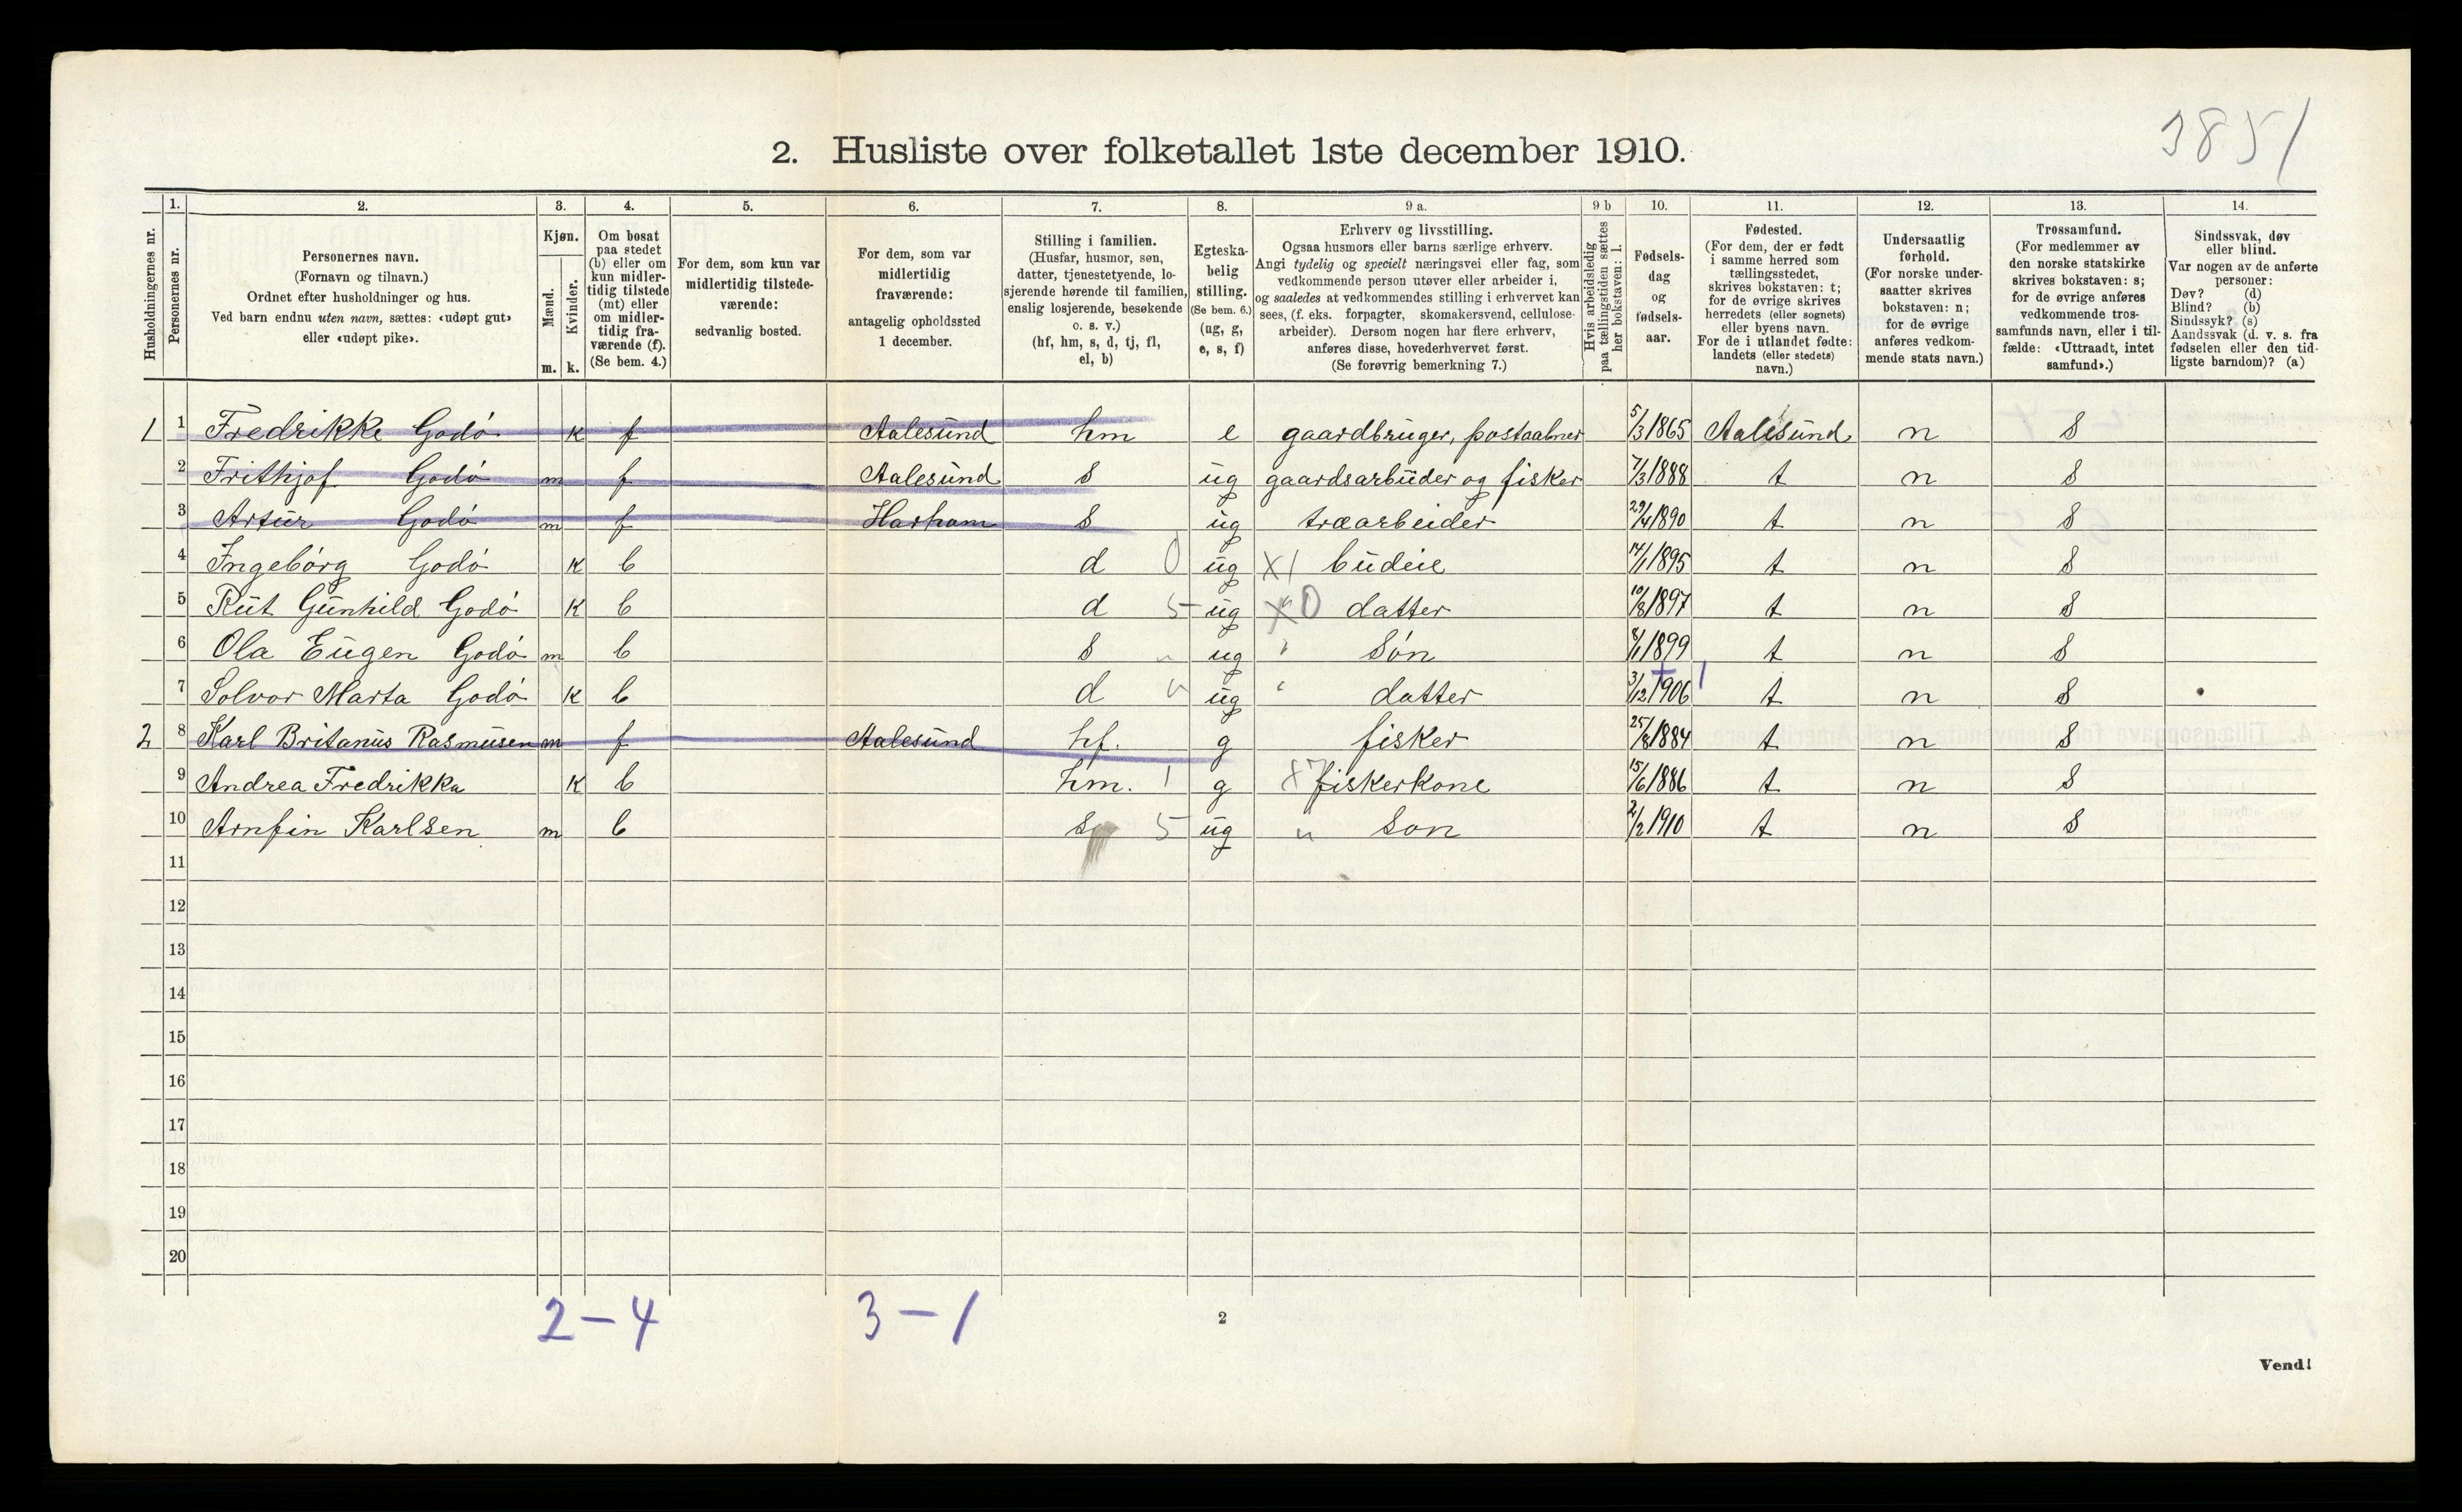 3851
2. Husliste over folketallet 1ste december 1910.
Husholdningernes nr.
1.
Personernes nr.
2.
Personernes navn.
(Fornavn og tilnavn.)
Ordnet efter husholdninger og hus.
Ved barn endnu uten navn, sættes: «udøpt gut»
eller «udøpt pike».
3.
Kjøn.
Mænd.
Kvinder.
m. k.
4.
Om bosat
paa stedet
(b) eller om
kun midler-
tidig tilstede
(mt) eller
om midler-
tidig fra-
værende (f).
(Se bem. 4.)
5.
For dem, som kun var
midlertidig tilstede-
værende:
sedvanlig bosted.
6.
For dem, som var
midlertidig
fraværende:
antagelig opholdssted
1 december.
7.
Stilling i familien.
(Husfar, husmor, søn,
datter, tjenestetyende, lo-
sjerende hørende til familien,
enslig losjerende, besøkende
o. s. v.)
(hf, hm, s, d, tj, fl,
el, b)
8.
Egteska-
belig
stilling.
(Se bem. 6.)
(ug, g,
e, s, f)
9 a.
Erhverv og livsstilling.
Ogsaa husmors eller barns særlige erhverv.
Angi tydelig og specielt næringsvei eller fag, som
vedkommende person utøver eller arbeider i,
og saaledes at vedkommendes stilling i erhvervet kan
sees, (f. eks. forpagter, skomakersvend, cellulose-
arbeider). Dersom nogen har flere erhverv,
anføres disse, hovederhvervet først.
(Se forøvrig bemerkning 7.)
9 b
Hvis arbeidsledig
paa tællingstiden sættes
her bokstaven: l.
10.
Fødsels-
dag
og
fødsels-
aar.
11.
Fødested.
(For dem, der er født
i samme herred som
tællingsstedet,
skrives bokstaven: t;
for de øvrige skrives
herredets (eller sognets)
eller byens navn.
For de i utlandet fødte:
landets (eller stedets)
navn.)
12.
Undersaatlig
forhold.
(For norske under-
saatter skrives
bokstaven: n;
for de øvrige
anføres vedkom-
mende stats navn.)
13.
Trossamfund.
(For medlemmer av
den norske statskirke
skrives bokstaven: s;
for de øvrige anføres
vedkommende tros-
samfunds navn, eller i til-
fælde: «Uttraadt, intet
samfund».)
14.
Sindssvak, døv
eller blind.
Var nogen av de anførte
personer:
Døv? (d)
Blind? (b)
Sindssyk? (s)
Aandssvak (d. v. s. fra
fødselen eller den tid-
ligste barndom)? (a)
1 1 Fredrikke Godø k f Aalesund hm e gaardbruger, postaabner 5/3 1865 Aalesund n S
2 Frithjof Godø m f Aalesund S ug gaardsarbeider og fisker 7/3 1888 t n S
3 Artur Godø m f Harham S ug træarbeider 29/4 1890 t n S
4 Ingebórg Godø k b d 0 ug X1 budeie 14/1 1895 t n S
5 Rut Gunhild Godø k b d 5 ug X 0 datter 10/8 1897 t n S
6 Ola Eugen Godø m b S " ug " Søn 8/1 1899 t n S
7 Solvor Marta Godø k b d " ug " datter 3/12 1906 1 t n S
2 8 Karl Britanus Rasmusen m f Aalesund hf. g fisker 25/8 1884 t n S
9 Andrea Fredrikka k b hm. 1 g X7 fiskerkone 15/6 1886 t n S
10 Arnfin Karlsen m b S 5 ug " Son 2/2 1910 t n S
11
12
13
14
15
16
17
18
19
20
2 – 4 3 – 1
2
Vend!